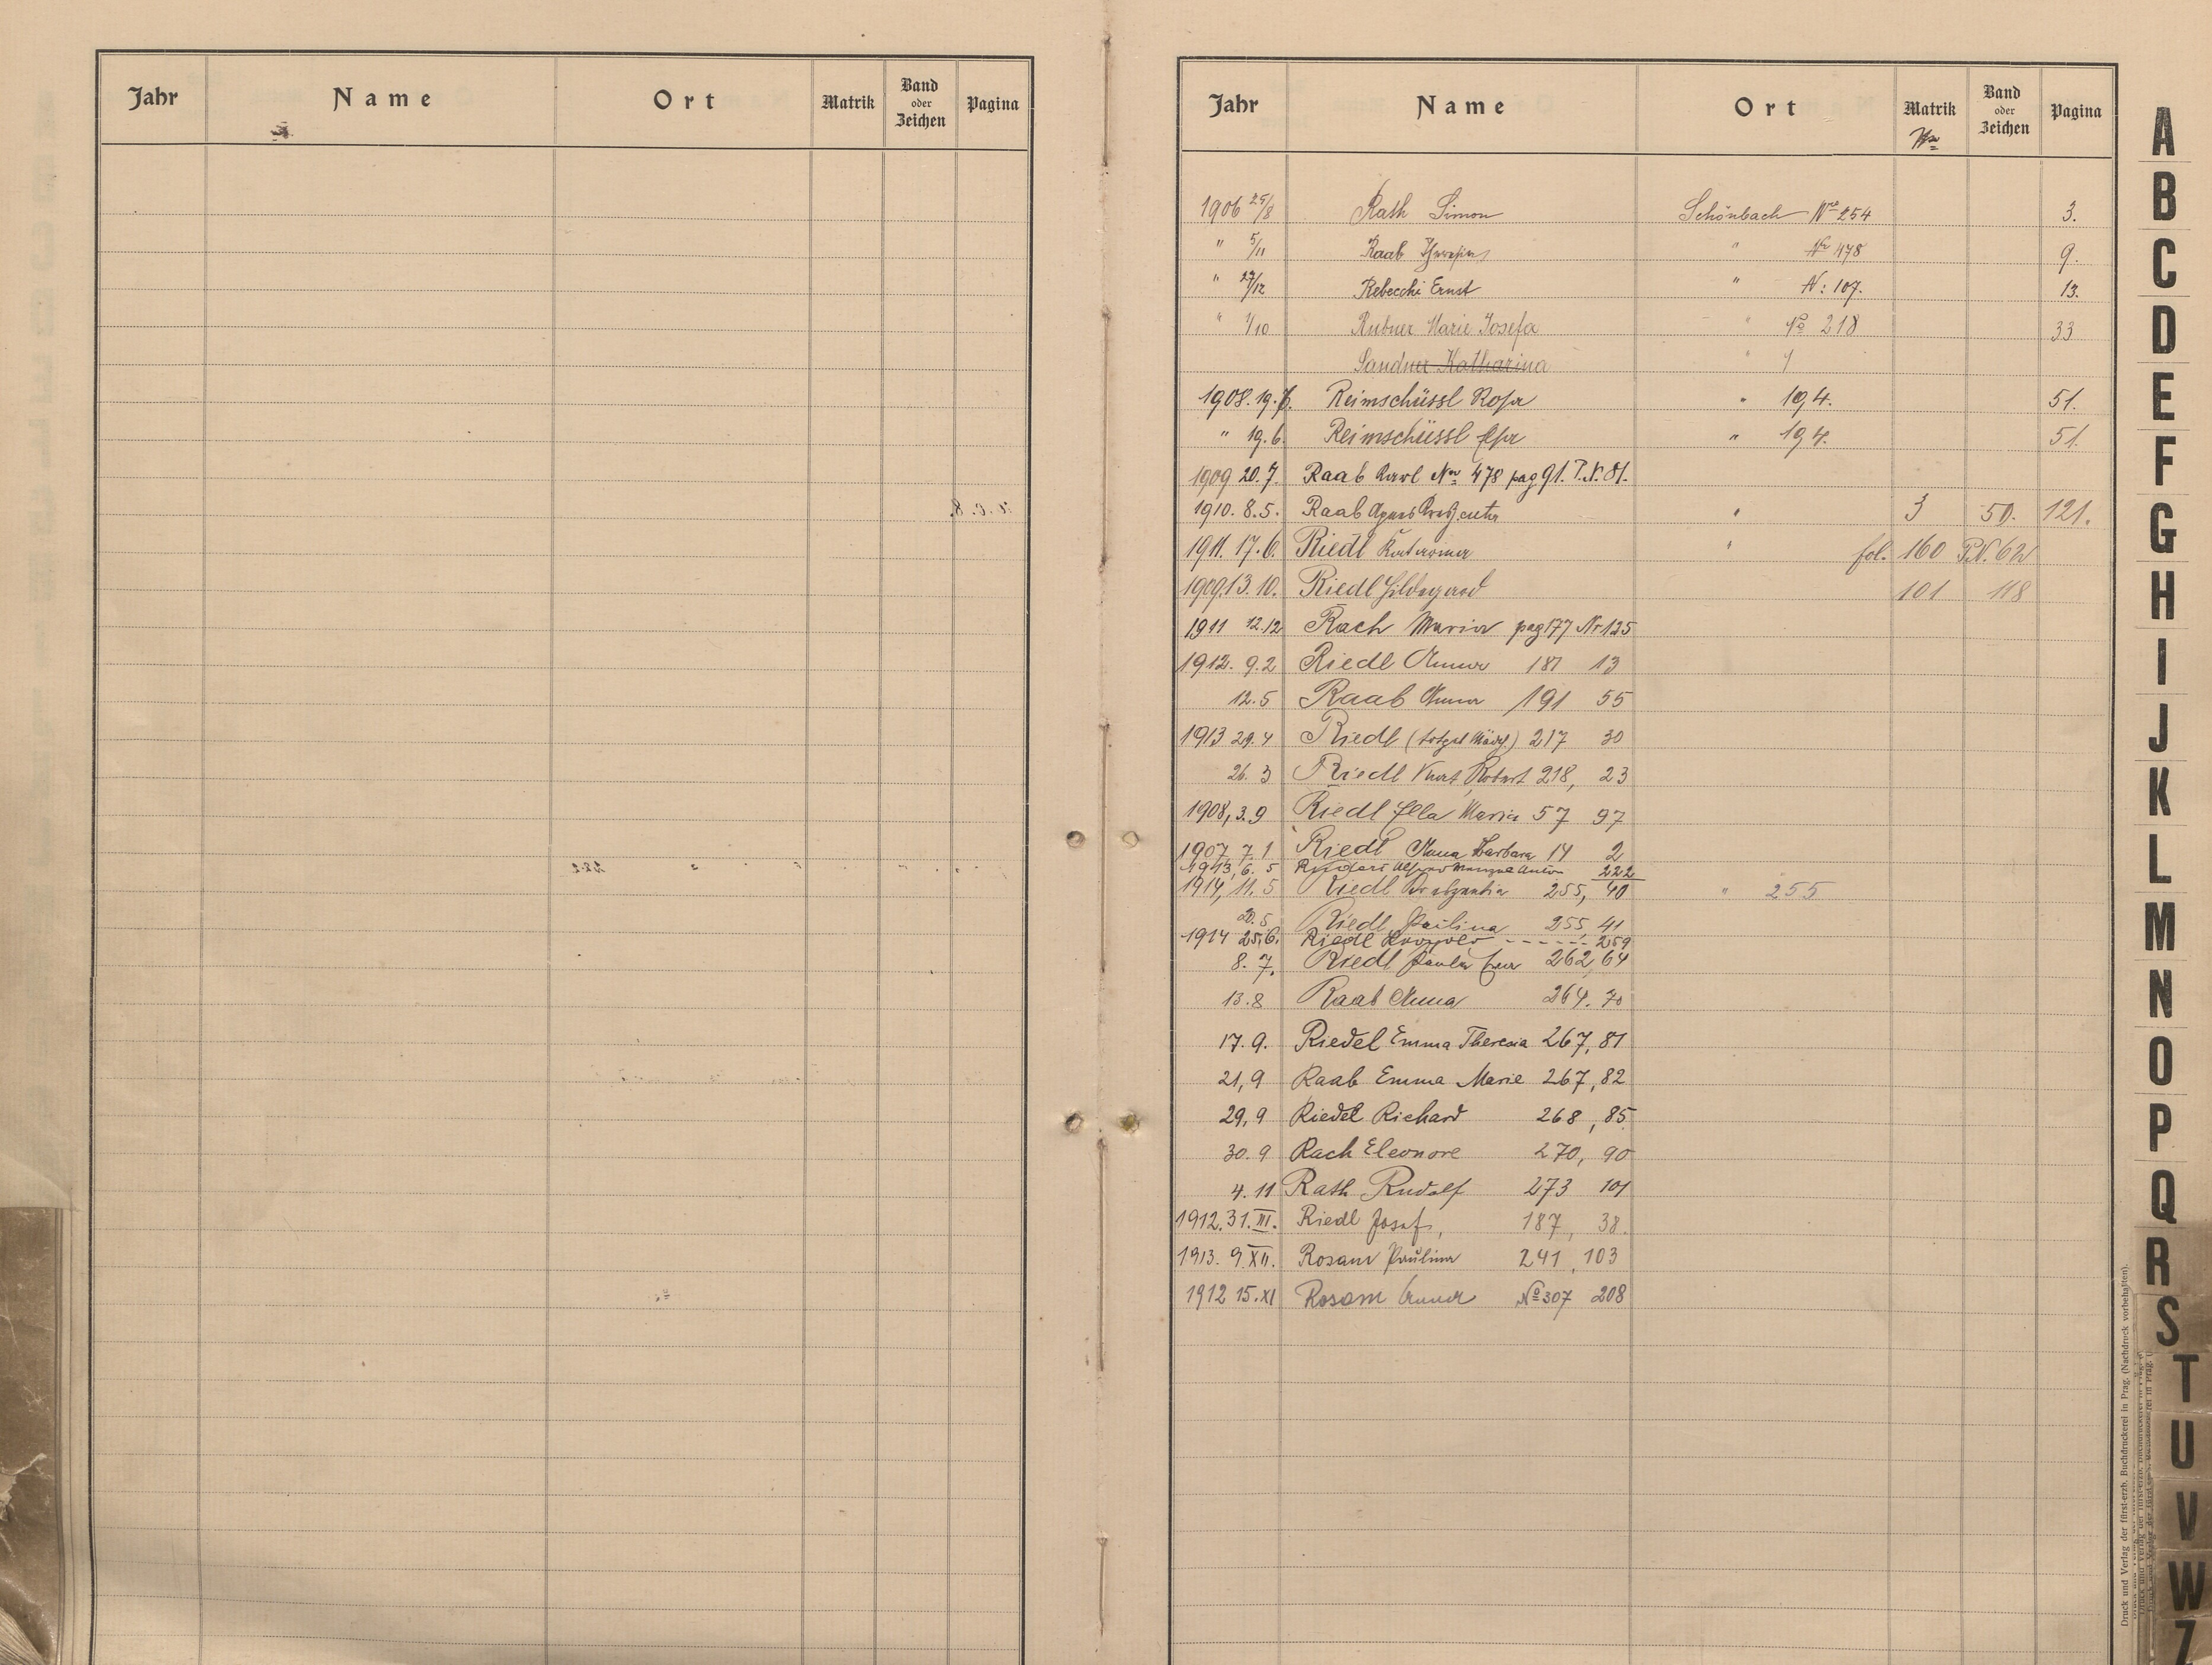 Jahr Name Ort Matrik Band oder Zeichen Pagina
Jahr Name Ort Matrik Band oder Zeichen Pagina
1906 25/8 Rath Simon Schönbach No 254 3.
" 5/11 Raab " No 478 9.
" 27/12 Rebecchi Ernst " N: 107. 13.
" 1/10 Rubner Marie Josefa " No 218 33
Sandner Katharina "
1908. 19. 6. Reimschüssl Rosa " 194. 51.
" 19. 6. Reimschüssl " 194. 51.
1909 20. 7. Raab Karl No 478 pag 91. P.N. 81.
1910. 8. 5. Raab Agnes " 3 50. 121.
1911. 17. 6. Riedl Katharina " fol. 160 P.N. 62
1909. 13. 10. Riedl Hildegard 101 118
1911 12. 12 Rach Maria pag 177 Nr 125
1912. 9. 2 Riedl Anna 181 13
12. 5 Raab Anna 191 55
1913 29. 4 Riedl (totgeb Mädch.) 217 30
26. 3 Riedl Kurt Robert 218, 23
1908, 3. 9 Riedl Ella Maria 57 97
1907 7. 1 Riedl Anna Barbara 14 2
1913, 6. 5 Anton 222
1914, 11. 5 Riedl 255, 40 " 255
20. 5 Riedl Paulina 255, 41
1914 25. 6. Riedl ------ 259
8. 7. Riedl Paula 262, 64
13. 8 Raab Anna 264. 70
17. 9. Riedel Emma Theresia 267, 81
21, 9 Raab Emma Marie 267, 82
29, 9 Riedel Richard 268, 85
30. 9 Rach Eleonore 270, 90
4. 11 Rath Rudolf 273 101
1912. 31. III. Riedl Josef, 187, 38.
1913. 9. XII. Rosam Paulina 241, 103
1912 15. XI Rosam Anna No 307 208
A
B
C
D
E
F
G
H
I
J
K
L
M
N
O
P
Q
R
S
T
U
V
W
Z
Druck und Verlag der fürst-erzb. Buchdruckerei in Prag. (Nachdruck vorbehalten).